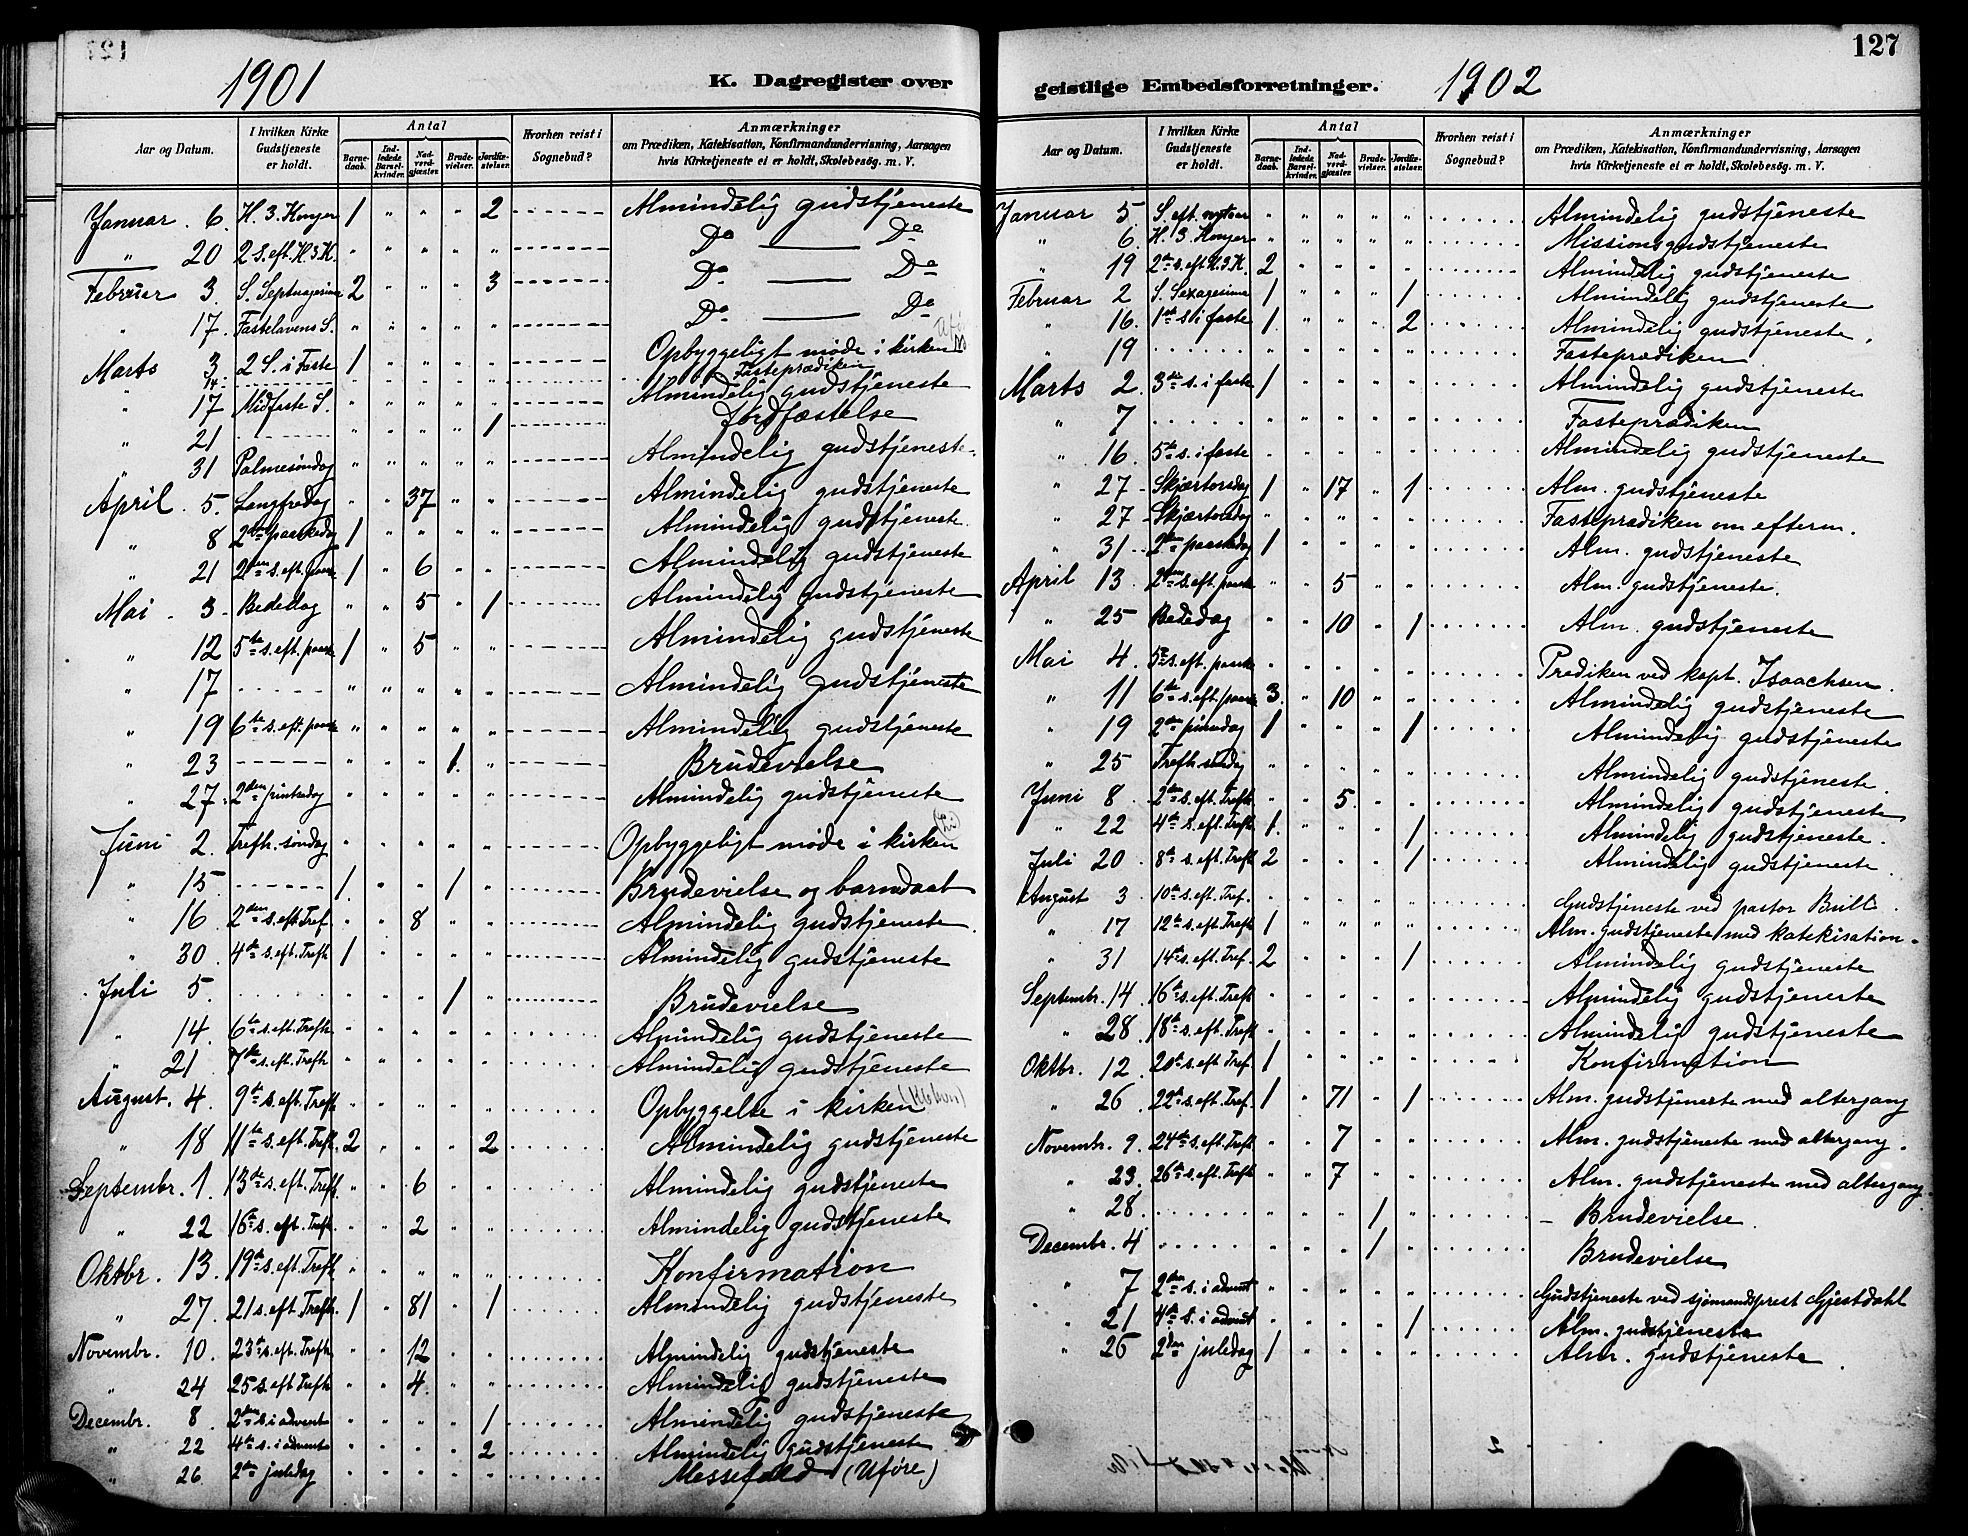 127
1901
K. Dagregister over
Aar og Datum. | I hvilken Kirke Gudstjeneste er holdt. | Antal | Barnedaab. | Indledede Barselkvinder. | Nadverdgjæster. | Brudevielser. | Jordfæstelser. | Hvorhen reist i Sognebud? | Anmærkninger om Prædiken, Katekisation, Konfirmandundervisning, Aarsagen hvis Kirketjeneste ei er holdt, Skolebesøg. m. V.
Januar . 6. H. 3. Konger 1 " " " 2 Almindelig gudstjeneste
" 20 2 S. eft. H. 3 K. " " " " " Do — Do
Februar 3. S. Septuagesima 2 " " " 3 Do — Do
" 17. Fastelavens S. " " " " " Do — Do
Marts 3 2 S. i Faste 1 " " " " Opbyggeligt møde i kirken
" 14. Fasteprædiken
" 17 Midfaste S. " " " " " Almindelig gudstjeneste
" 21 " " " " 1 Jordfæstelse
" 31 Palmesøndag " " " " " Almindelig gudstjeneste
April . 5. Langfredag " " 37 " " Almindelig gudstjeneste
" 8 2den paaskedag 1 " " " " Almindelig gudstjeneste
" 21 2den s. eft. paas 1 " 6 " " Almindelig gudstjeneste
Mai . 3 Bededag " " 5 " 1 Almindelig gudstjeneste
" 12 5te s. eft. paask 1 " 5 " " Almindelig gudstjeneste
" 17 " " " " " Almindelig gudstjeneste
" 19 6te s. eft. paask " " " " " Almindelig gudstjeneste
" 23 " " " 1. " Brudevielse
" 27. 2den pintsedag " " " " " Almindelig gudstjeneste
Juni 2. Trefh. søndag " " " " " Opbyggeligt møde i kirken
" 15 1 " " 1 " Brudevielse og barnedaab
" 16 2den s. eft. Tref " " 8 " " Almindelig gudstjeneste
" 30 4de s. eft. Trefh 1 " " " " Almindelig gudstjeneste
Juli 5. " " " 1 " Brudevielse
" 14. 6te s. eft. Trefh " " " " " Almindelig gudstjeneste
" 21 7de s. eft. Trefh " " " " " Almindelig gudstjeneste
August. 4. 9de s. eft. Trefh " " " " " Opbyggelse i kirken
" 18 11te s. eft. Trefh. 2 " " " 2 Almindelig gudstjeneste
Septembr. 1. 13de s. eft. Trefh. " " 6 " " Almindelig gudstjeneste
" 22 16de s. eft. Trefh. " " 2 " " Almindelig gudstjeneste
Oktbr. 13. 19de s. eft. Trefh " " " " " Konfirmation
" 27. 21 s. eft. Trefh. 1 " 81 " 1 Almindelig gudstjeneste
Novembr. 10. 23de s. eft. Trefh " " 12 " " Almindelig gudstjeneste
" 24 25 s. eft. Trefh " " 4. " " Almindelig gudstjeneste
Decembr. 8. 2den s. i advent " " " " 1 Almindelig gudstjeneste
" 22 4de s. i advent " " " " 2 Almindelig gudstjeneste
" 26 2den juledag " " " " " Messefald (Uføre)
127
geistlige Embedsforretninger. 1902
Aar og Datum. | I hvilken Kirke Gudstjeneste er holdt. | Antal | Barnedaab. | Indledede Barselkvinder. | Nadverdgjæster. | Brudevielser. | Jordfæstelser. | Hvorhen reist i Sognebud? | Anmærkninger om Prædiken, Katekisation, Konfirmandundervisning, Aarsagen hvis Kirketjeneste ei er holdt, Skolebesøg. m. V.
Januar 5 S. eft. nytaar " " " " " Almindelig gudstjeneste
" 6. H. 3. Konger " " " " " Missionsgudstjeneste
" 19 2den s. eft. H. 3 K. 2 " " " " Almindelig gudstjeneste
Februar 2 S. Sexagesima 1 " " " 1 Almindelig gudstjeneste
" 16. 1ste s. i faste 1. " " " 2 Almindelig gudstjeneste.
" 19 " " " " " Fasteprædiken
Marts 2. 3de s. i faste 1 " " " " Almindelig gudstjeneste
" 7 " " " " " Fasteprædiken
" 16. 5te s. i faste " " " " " Almindelig gudstjeneste
" 27 Skjærtorsdag 1 " 17 " 1 Alm. gudstjeneste
" 27 Skjærtorsdag " " " " " Fasteprædiken om efterm.
" 31 2den paaskedag 1 " " " " Alm. gudstjeneste
April 13. 2den s. eft. paask " " 5 " " Alm. gudstjeneste.
" 25 Bededag " " 10 " 1 Alm. gudstjeneste
Mai 4. 5te s. eft. paask " " " " " Prædiken ved kapt. Isaachsen.
" 11 6te s. eft. paask 3. " 10 " " Almindelig gudstjeneste
" 19 2den pinsedag 1 " " " 1 Almindelig gudstjeneste
" 25 Trefh. søndag " " " " " Almindelig gudstjeneste.
Juni 8 2den s. eft. Trefh " " 5. " " Almindelig gudstjeneste
" 22 4de s. eft. Trefh 1. " " " 1 Almindelig gudstjeneste.
Juli 20 8de s. eft. Trefh 2 " " " 1 Almindelig gudstjeneste
August 3. 10de s. eft. Tref. " " " " " Gudstjeneste ved pastor Bull.
" 17 12te s. eft. Trefh 1 " " " " Alm. gudstjeneste med katekisation.
" 31 14de s. eft. Tref. 2 " " " 1 Almindelig gudstjeneste
Septembr. 14. 16de s. eft. Trefh " " " " " Almindelig gudstjeneste
" 28. 18de s. eft. Trefh " " " " " Almindelig gudstjeneste
Oktbr. 12. 20de s. eft. Tref. 1 " " " " Konfirmation
" 26 22de s. eft. Tref. 1 " 71 " 1 Alm. gudstjeneste med altergang
Novembr. 9. 24de s. eft. Trefh " " 7 " " Alm. gudstjeneste med altergang.
" 23. 26de s. eft. Trefh " " 7 " " Alm. gudstjeneste med altergang.
" 28. " " " 1 " Brudevielse.
Decembr. 4 " " " 1 " Brudevielse
" 7 2den s. i advent " " " " " Gudstjeneste ved sjømandsprest Gjestdahl
" 21 4de s. i advent " " " " 1 Alm. gudstjeneste
" 26 2den juledag 1 " " " " Alm. gudstjeneste.